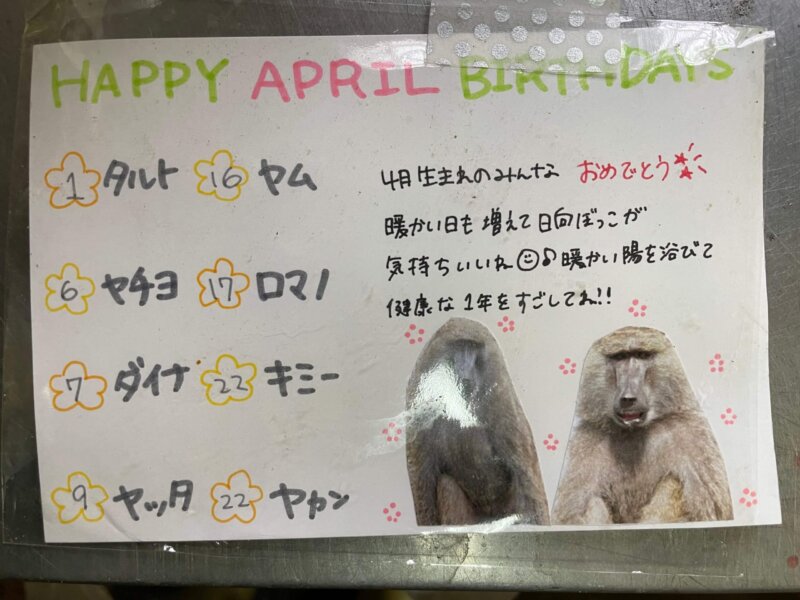 HAPPY APRIL BIRTHDAYS
1 タルト 16 ヤム
6 ヤチヨ 17 ロマノ
7 ダイナ 22 キミー
9 ヤッタ 22 ヤカン
4月生まれのみんな おめでとう
暖かい日も増えて日向ぼっこが
気持ちいいね☺♪暖かい陽を浴びて
健康な1年をすごしてね!!